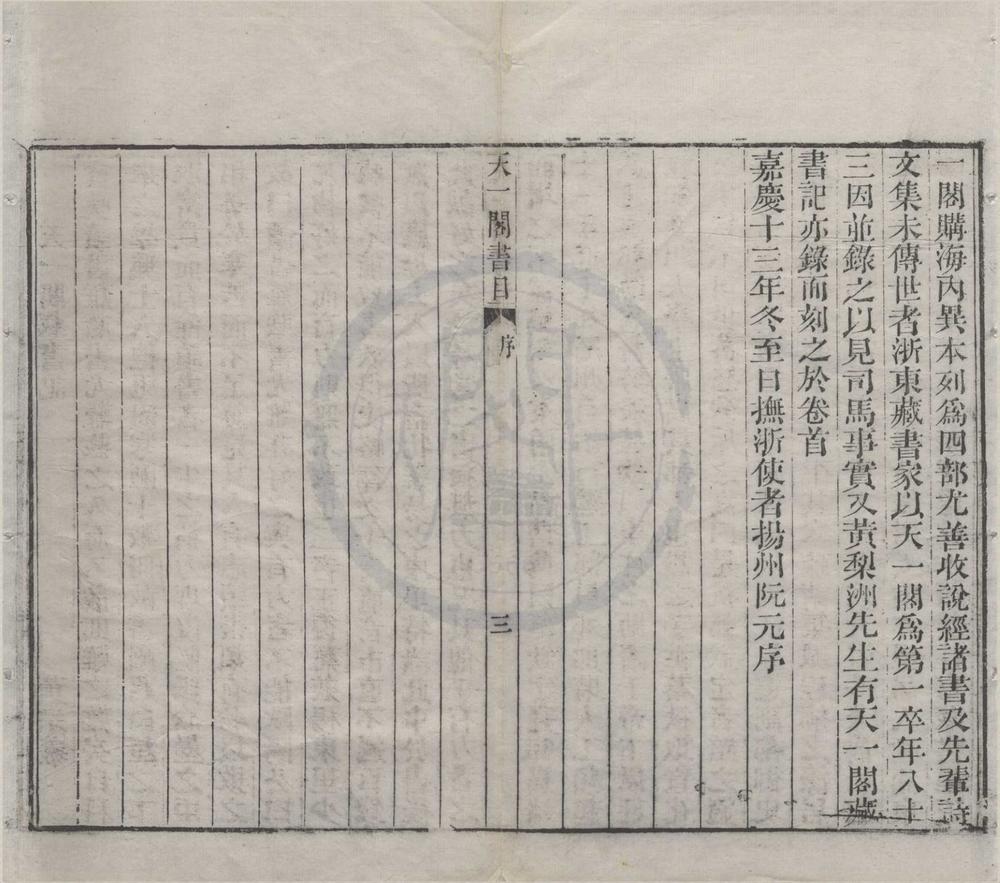 一閣購海內異本列為四部尤善收說經諸書及先輩詩
文集未傳世者浙東藏書家以天一閣為第一卒年八十
三因並錄之以見司馬事實又黃梨洲先生有天一閣藏
書記亦錄而刻之於卷首
嘉慶十三年冬至日撫浙使者揚州阮元序
天一閣書目 序 三